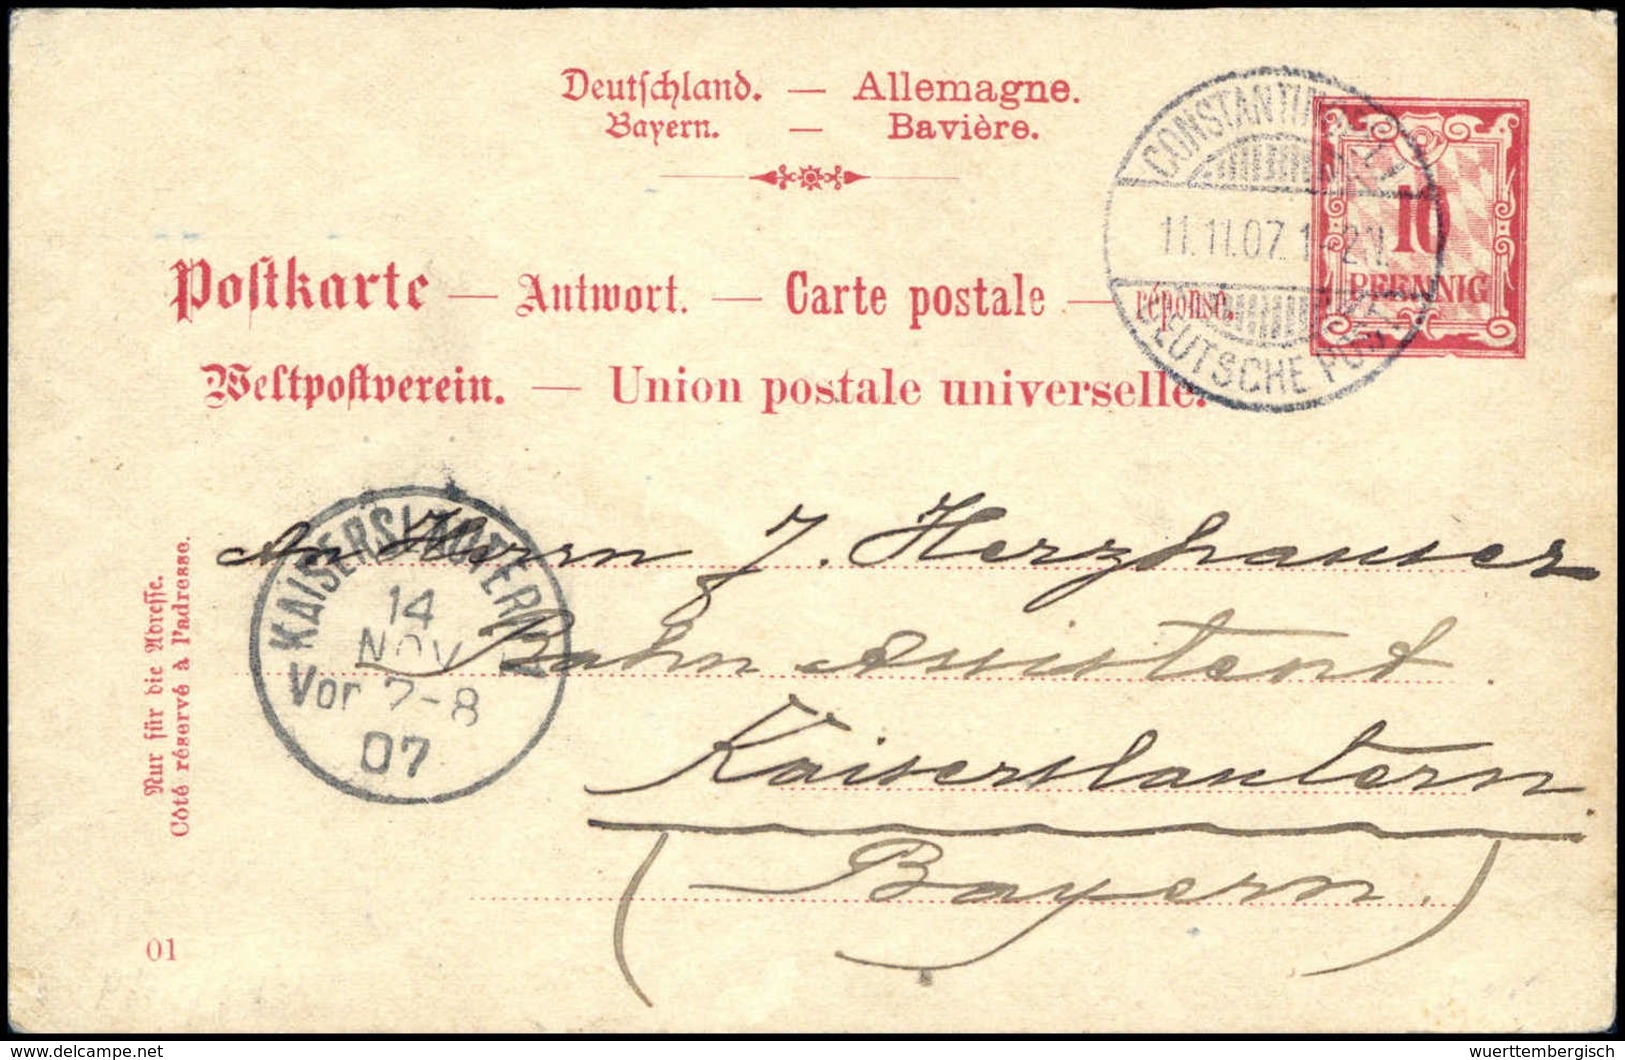 Deutschland. — Allemagne.
Bayern. — Bavière.
CONSTANTINOPEL 1
11.11.07. 1-2N.
DEUTSCHE POST
10
PFENNIG
Postkarte — Antwort. — Carte postale — réponse.
Weltpostverein. — Union postale universelle.
KAISERSLAUTERN 2
14
NOV
Vor 7-8
07
An Herrn J. Herzhauser
Bahn Assistent.
Kaiserslautern.
(Bayern.)
Nur für die Adresse.
Côté réservé à l'adresse.
01
wuerttembergisch